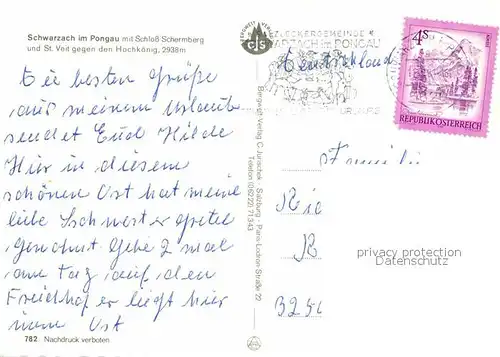 Schwarzach im Pongau mit Schloß Schernberg
und St. Veit gegen den Hochkönig, 2938m
Die besten Grüße
aus meinem Urlaub
sendet Euch Hilde
Hier in diesem
schönen Ort hat meine
liebe Schwester Gretel
Gewohnt Gehe 2 mal
am Tag auf den
Friedhof er liegt hier
im Ort
782 Nachdruck verboten
BERGWELT VERLAG
CJS
Bergwelt-Verlag C. Jurischek · Salzburg · Paris-Lodron-Straße 22
Telefon (06222) 71343
SCHWARZACH im PONGAU
4S
REPUBLIK ÖSTERREICH
Familie
privacy protection
Datenschutz